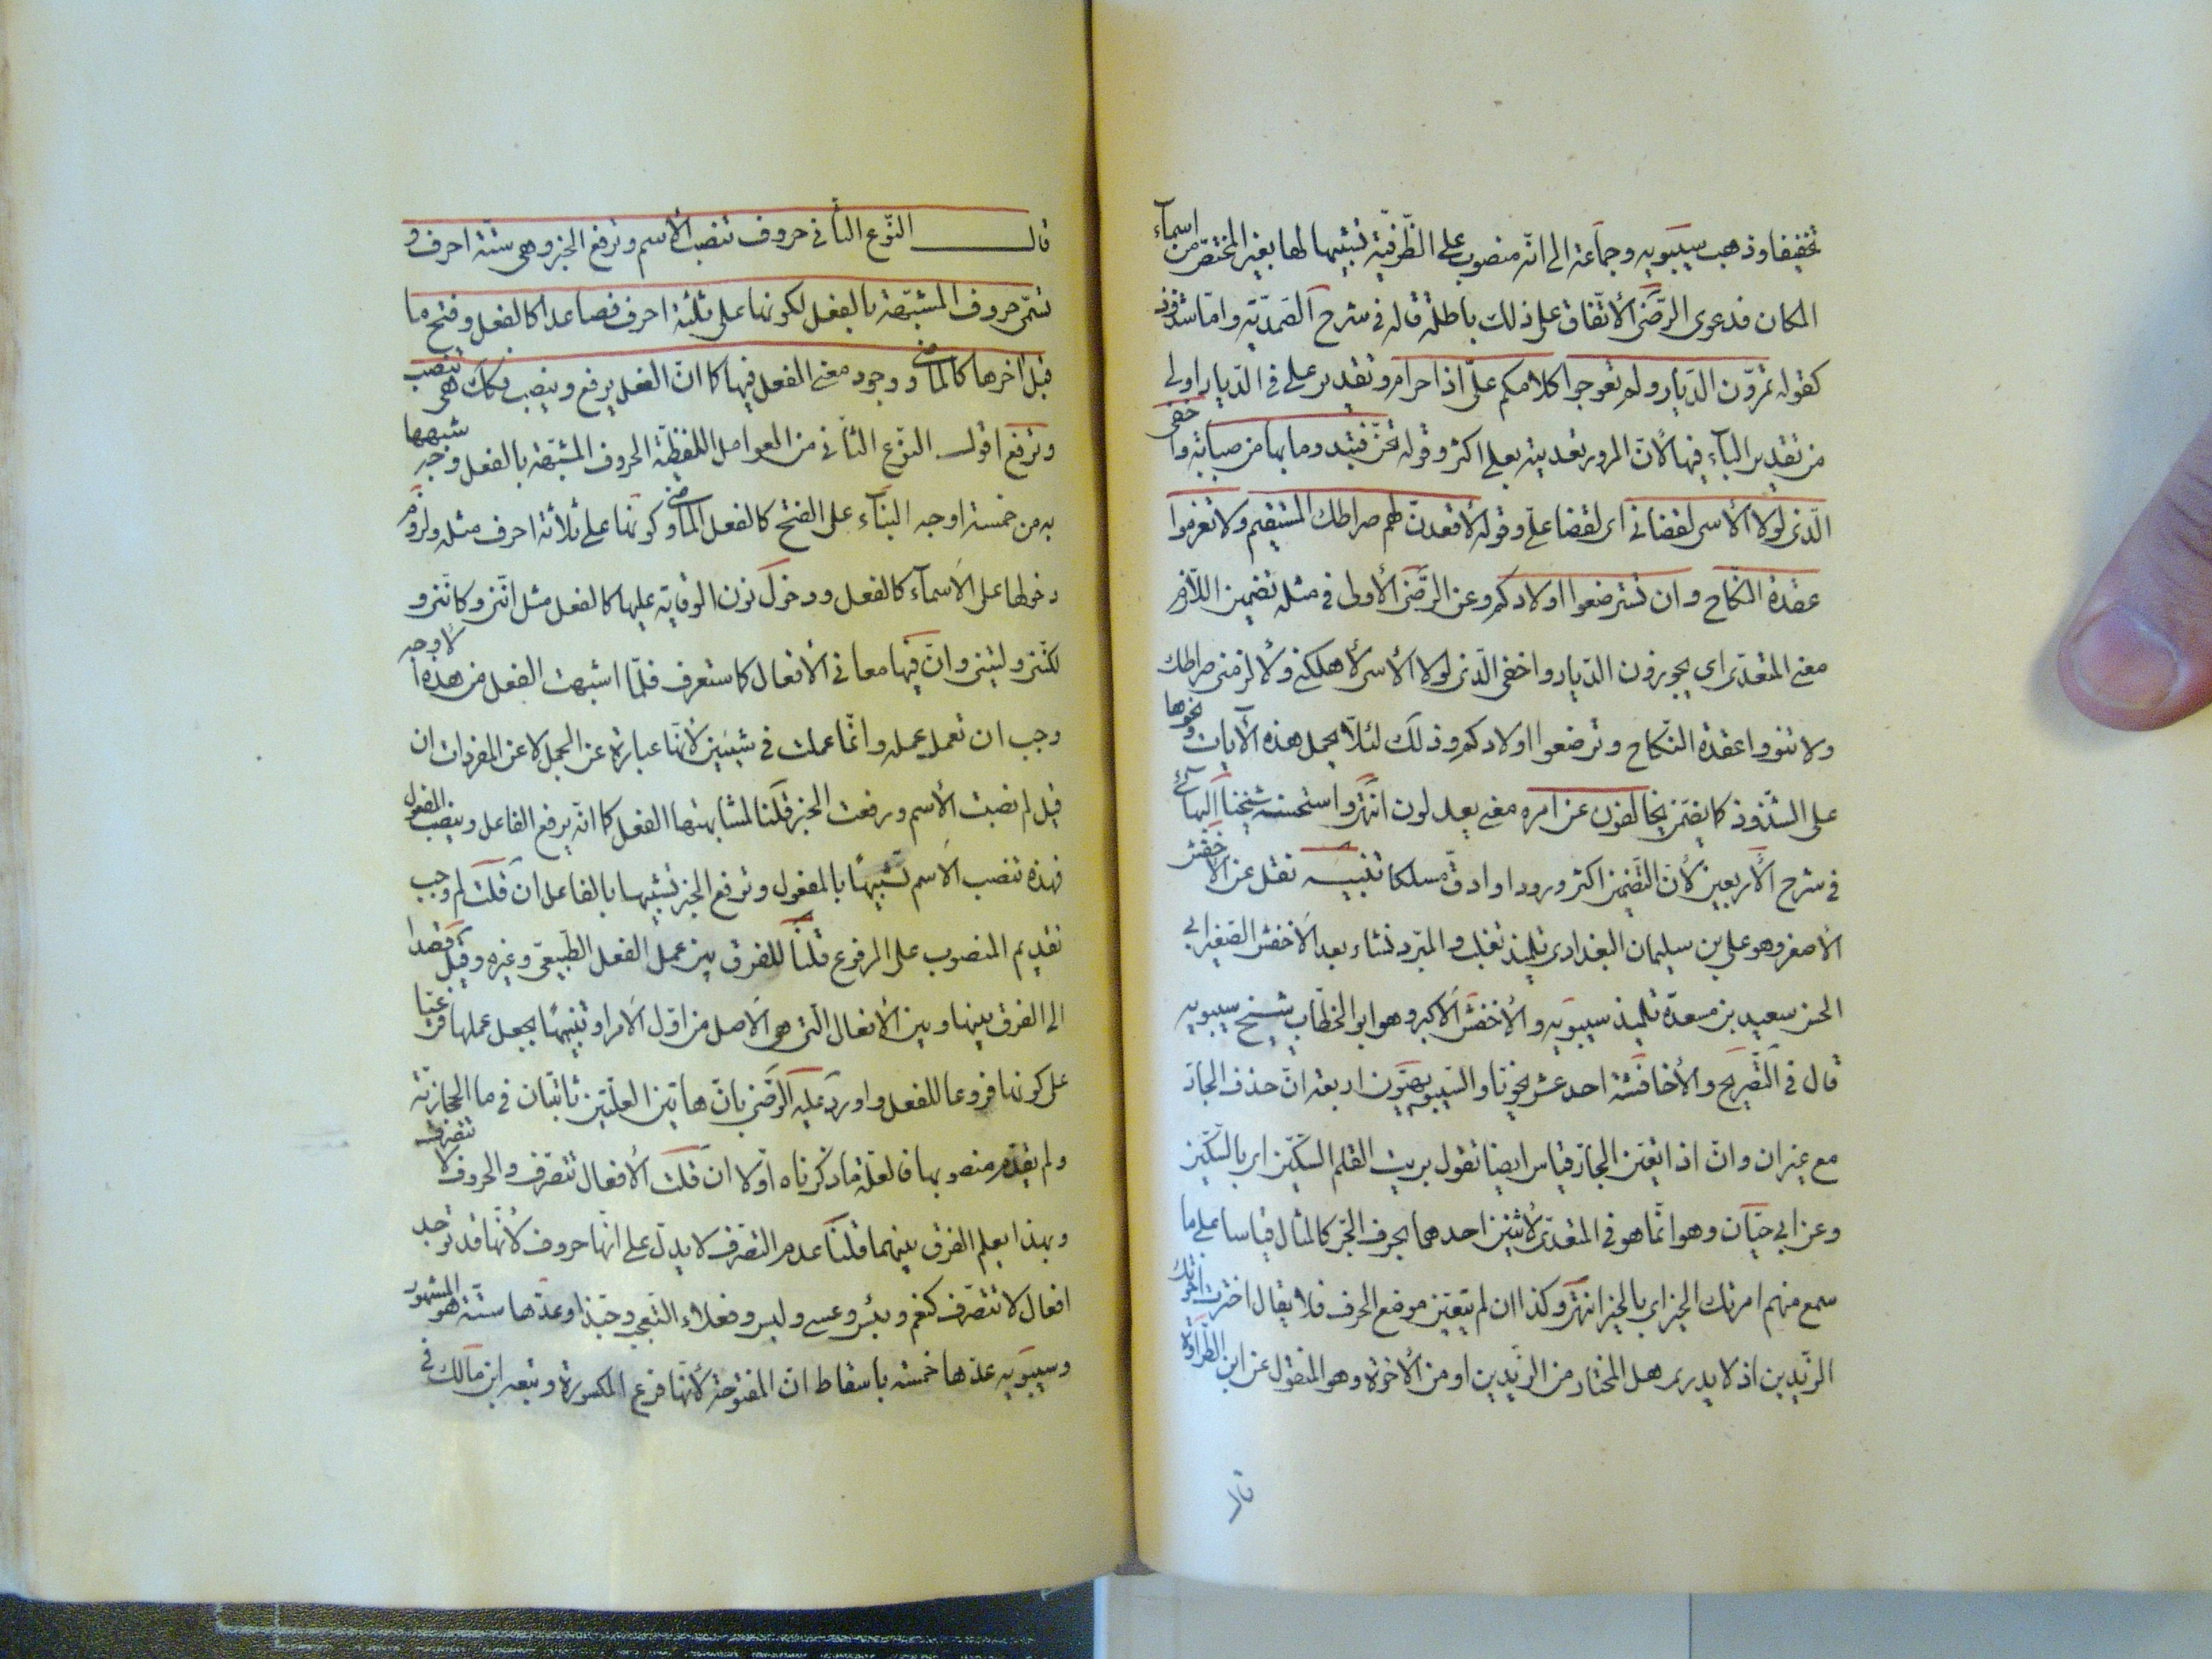 تخفيفا وذهب سيبويه وجماعة الى انه منصوب على الظرفية تشبيها لها بغير المختص من اسمآء
المكان فدعوى الرّضى الأتّفاق على ذلك باطلة قاله فى شرح الصّمديّه وامّا شذوذ
كقوله تمرّون الدّيار ولم تعوجوا كلامكم علىّ اذا حرام وتقدير على فى الدّيار اولى
من تقدير البآء فيها لأنّ المرور تعديته بعلى اكثر وقوله تحنّ فتبدى ما بها من صبابة واخفى
الّذى لولا الأسى لقضانى اى لقضا علىّ وقوله لأقعدنّ لهم صراطك المستقيم ولا تعزموا
عقدة النكاح وان تسترضعوا اولادكم وعن الرّضى الأولى فى مثله تضمين اللّازم
معنى المتعدّى اى يجوزون الدّيار واخفى الّذى لولا الأسى لأهلكنى ولألزمنّ صراطك
ولا تنووا عقدة النّكاح وترضعوا اولادكم وذلك لئلّا يحمل هذه الآيات ونحوها
على الشّذوذ كما يضمّن يخالفون عن امره معنى يعدلون انتهى واستحسنه شيخنا البهائى
فى شرح الأربعين لأنّ التّضمين اكثر ورودا وادقّ مسلكا تنبيه نقل عن الأخفش
الأصغر وهو على بن سليمان البغدادى تلميذ ثعلب والمبرّد نشاء بعد الأخفش الصّغير ابى
الحسن سعيد بن مسعدة تلميذ سيبويه والأخفش الأكبر وهو ابو الخطّاب شيخ سيبويه
قال فى التّصريح والأخافشة احد عشر نحويّا والسّيبويهيّون اربعة انّ حذف الجارّ
مع غير ان وانّ اذا تعيّن الجارّ قياس ايضا تقول بريت القلم السّكّين اى بالسّكّين
وعن ابى حيّان وهو انّما هو فى المتعدّى لأثنين احدهما بحرف الجّر كالمثال قياسا على ما
سمع منهم امرتك الخير اى بالخير انتهى وكذا ان لم يتعيّن موضع الحرف فلا يقال اخترت اخوتك
الزّيدين اذ لا يدرى هل المختار من الزّيدين او من الأخوة وهو المنقول عن ابن الطّراوة
قال النّوع الثّانى حروف تنصب الأسم وترفع الخبر وهى ستّة احرف و
تسمّى حروف المشبّهة بالفعل لكونها على ثلثة احرف فصاعدا كالفعل وفتح ما
قبل اخرها كالماضى ووجود معنى الفعل فيها كما انّ الفعل يرفع وينصب فكك هى تنصب
وترفع اقول النّوع الثّانى من العوامل اللفظيّة الحروف المشبّهة بالفعل وجه شبهها
به من خمسة اوجه البنآء على الفتح كالفعل الماضى وكونها على ثلاثة احرف مثله ولزوم
دخولها على الأسمآء كالفعل ودخول نون الوقاية عليها كالفعل مثل انّنى وكانّنى و
لكنّنى وليتنى وانّ فيها معانى الأفعال كما ستعرف فلمّا اشبهت الفعل من هذه الأوجه
وجب ان تعمل عمله وانّما عملت فى شيئين لأنّها عبارة عن الجمل لا عن المفردات ان
قيل لم نصبت الأسم ورفعت الخبر قلنا لمشابهتها الفعل كما انّه يرفع الفاعل وينصب المفعول
فهذه تنصب الأسم تشبيهًا بالمفعول وترفع الخبر تشبيها بالفاعل ان قلت لم وجب
تقديم المنصوب على المرفوع قلنا للفرق بين عمل الفعل الطّبيعى وغيره وقيل قصدا
الى الفرق بينها وبين الأفعال الّتى هى الأصل من اوّل الأمر او تنبيهًا بجعل عملها فرعيّا
على كونها فروعا للفعل واورد عليه الرّضى بانّ هاتين العلّتين ثابتتان فى ما الحجازيّة
ولم يقدّم منصوبها فالعلّة ما ذكرناه اوّلا ان قلت الأفعال تتصرّف والحروف لا تتصرف
وبهذا يعلم الفرق بينهما قلنا عدم التصّرف لا يدلّ على انّها حروف لأنّها قد توجد
افعال لا تتصّرف كنعم وبئس وعسى وليس وفعلاء التّعجّب وحبّذا وعدّها ستّة هو المشهور
وسيبويه عدّها خمسة باسقاط انّ المفتوحة لأنّها فرع المكسورة وتبعه ابن مالك فى